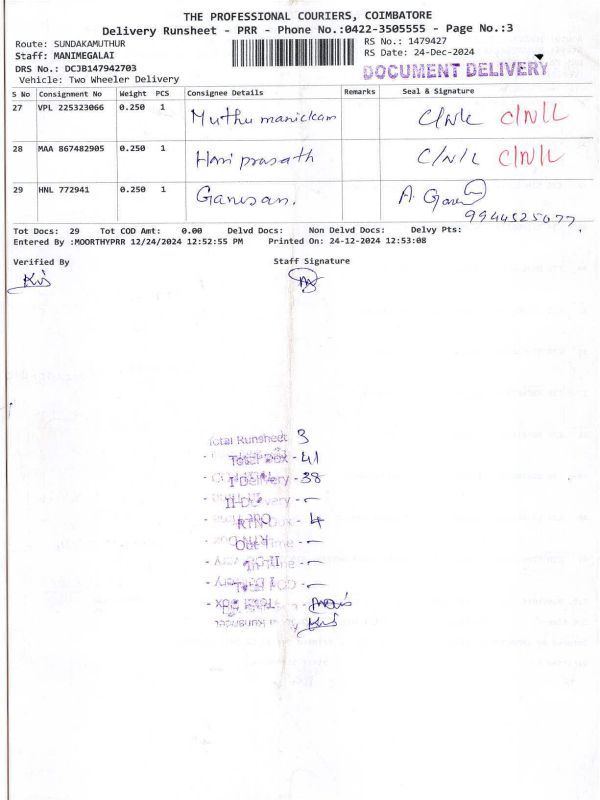 THE PROFESSIONAL COURIERS, COIMBATORE
Delivery Runsheet - PRR - Phone No.:0422-3505555 - Page No.:3
Route: SUNDAKAMUTHUR
RS No.: 1479427
Staff: MANIMEGALAI
RS Date: 24-Dec-2024
DRS No.: DCJB147942703
DOCUMENT DELIVERY
Vehicle: Two Wheeler Delivery
S No Consignment No Weight PCS Consignee Details Remarks Seal & Signature
27 VPL 225323066 0.250 1 Muthu manickam C/N/L C/N/L
28 MAA 867482905 0.250 1 Hari prasath C/N/L C/N/L
29 HNL 772941 0.250 1 Ganesan. A. Gane
9944525077
Tot Docs: 29 Tot COD Amt: 0.00 Delvd Docs: Non Delvd Docs: Delvy Pts:
Entered By :MOORTHYPRR 12/24/2024 12:52:55 PM Printed On: 24-12-2024 12:53:08
Verified By Staff Signature
Total Runsheet 3
Total Dox - 41
I Delivery - 38
II Delivery - -
RTN Dox - 4
Out Time - -
In Time - -